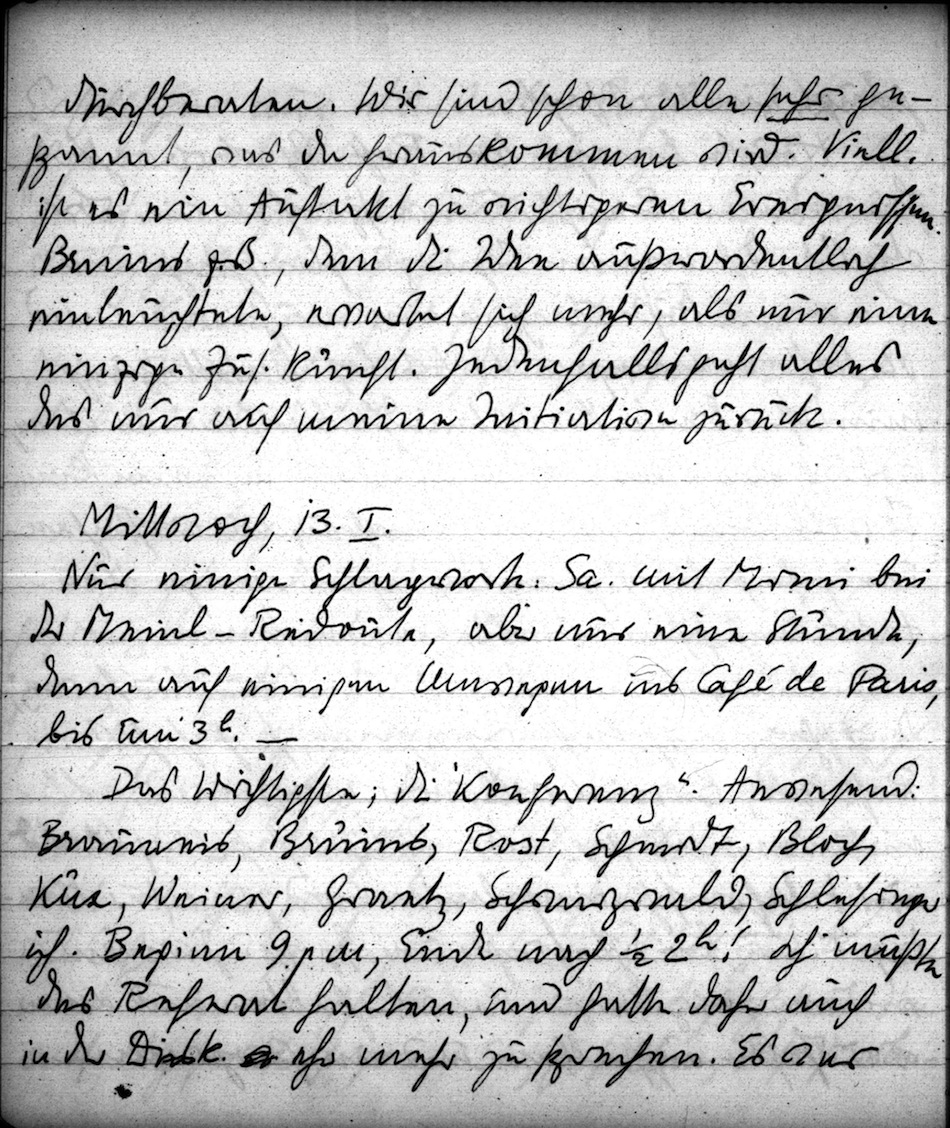 durchberaten. Wir sind schon alle sehr ge-
spannt, was da herauskommen wird. Viell.
ist es ein Auftakt zu wichtigeren Ereignissen.
Brunis z.B., dem die Idee außerordentlich
einleuchtete, erwartet sich mehr, als nur eine
einzige Zus.kunft. Jedenfalls geht alles
das nur auf meine Initiative zurück.
Mittwoch, 13. I.
Nur einige Schlagworte: Sa. mit bei
der Meinl-Redoute, aber nur eine Stunde,
dann auf einigen Umwegen ins Café de Paris,
bis um 3h. —
Das Wichtigste; die "Konferenz". Anwesend:
Brauneis, Brunis, Rost, Schmidt, Bloch,
Kux, Weiner, Graetz, Schrutzwald, Schlesinger
ich. Beginn 9 pm, Ende nach ½ 2h! Ich mußte
das Referat halten, und hatte daher auch
in der Disk. sehr mehr zu sprechen. Es war